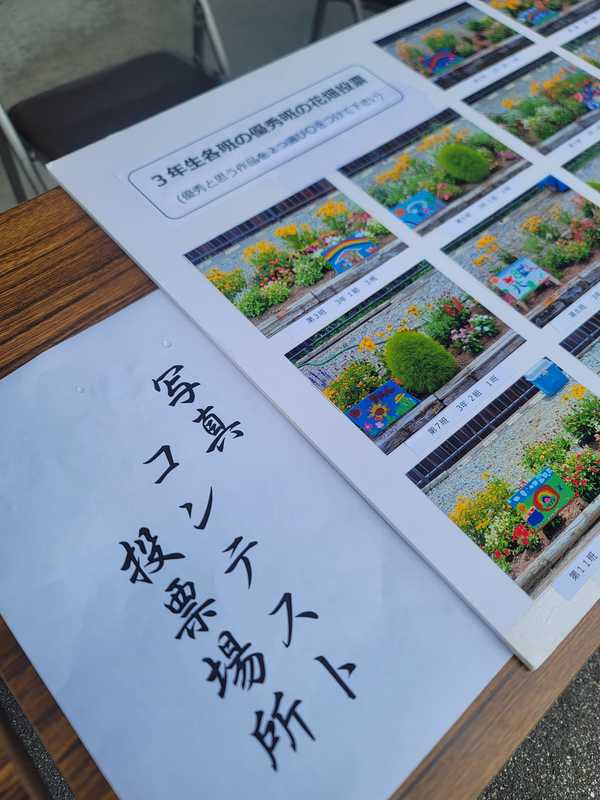 3年生各班の優秀班の花壇投票
(優秀と思う作品を2つ選び○をつけて下さい)
第3班 3年1組 3班
第7班 3年2組 1班
第11班
写真コンテスト
投票場所